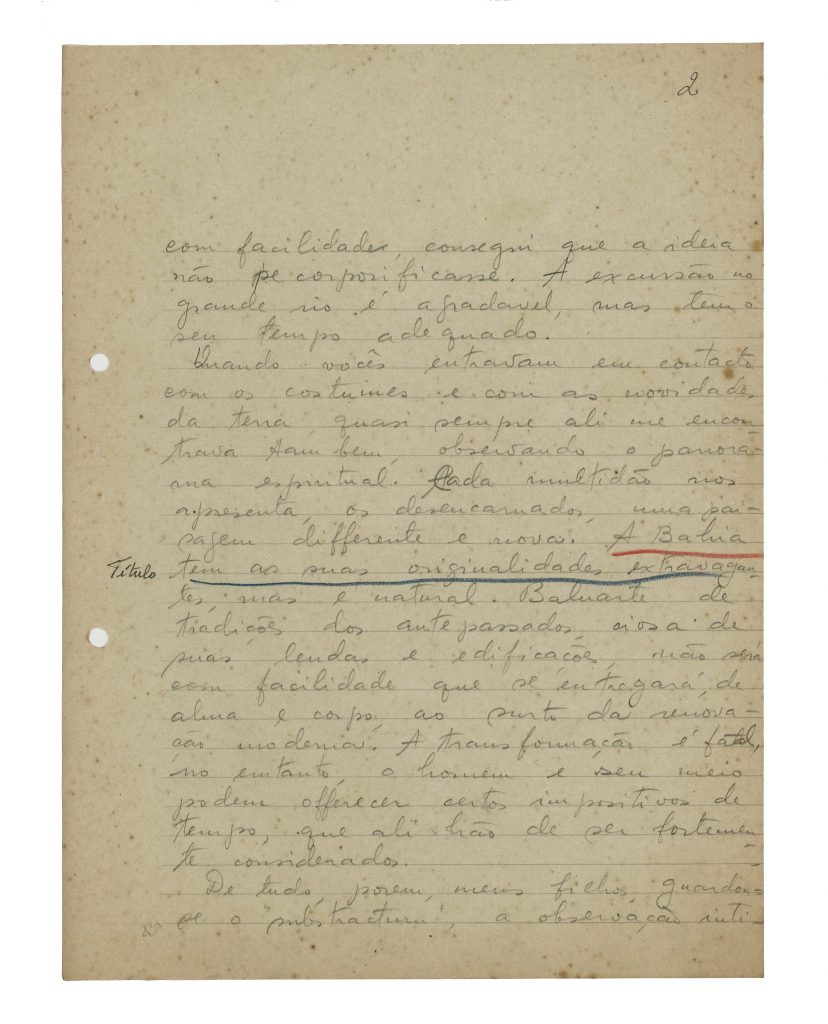 2
com facilidade, consegui que a ideia
não se corporificasse. A excursão no
grande rio é agradavel, mas tem o
seu tempo adequado.
Quando vocês entravam em contacto
com os costumes e com as novidades
da terra, quasi sempre ali me encon
trava tambem, observando o panorá-
ma espiritual. Cada multidão nos
apresenta, os desencarnados, uma pai-
sagem differente e nova. A Bahia
Título tem as suas originalidades extravagan-
tes, mas é natural. Baluarte de
tradições dos antepassados, ciosa de
suas lendas e edificações, não será
com facilidade que se entregará, de
alma e corpo, ao surto da renova-
ção moderna. A transformação é fatal,
no emtanto, o homem e seu meio
podem offerecer certos impositivos de
tempo, que ali hão de ser fortemen-
te considerados.
De tudo, porem, meus filhos, guardou-
se o "substractum", a observação inti-